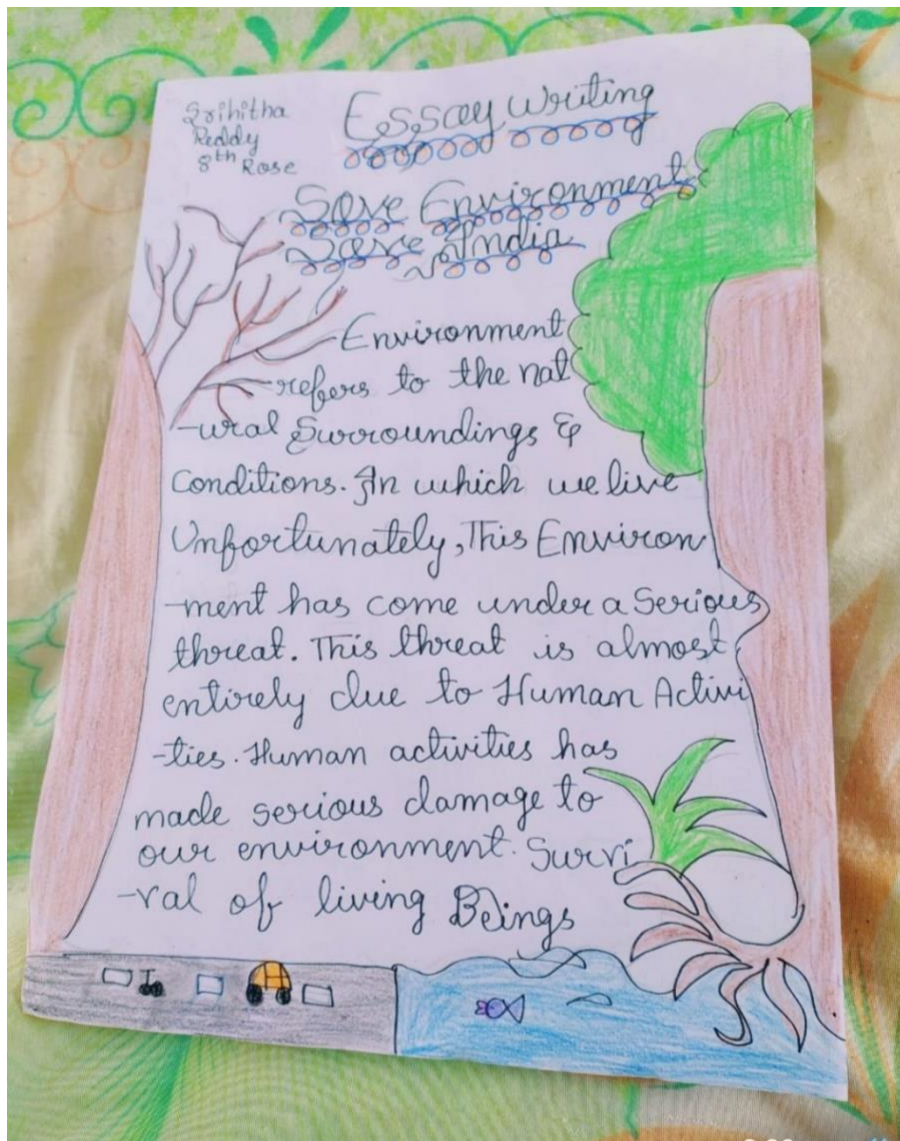 Srihitha
Reddy
8th Rose
Essay Writing
Save Environment
Save India
Environment
refers to the nat
-ural Surroundings &
Conditions. In which we live
Unfortunately, This Environ
-ment has come under a Serious
threat. This threat is almost
entirely due to Human Activi
-ties. Human activities has
made serious damage to
our environment. Survi
-val of living Beings